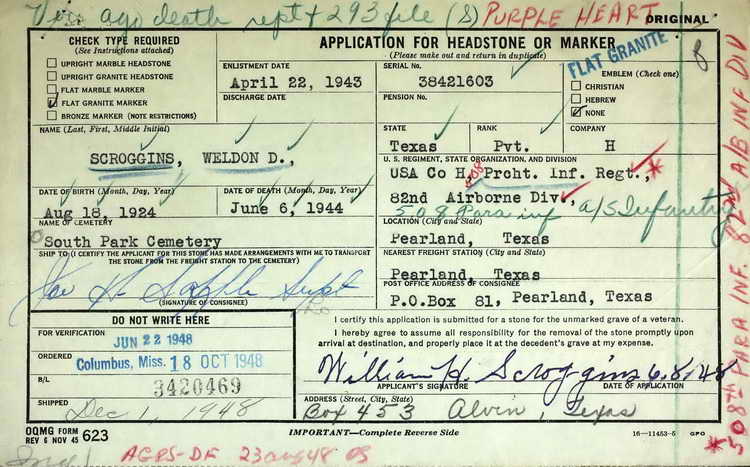 Via ago death rept + 293 file (S) PURPLE HEART
ORIGINAL
CHECK TYPE REQUIRED
(See Instructions attached)
UPRIGHT MARBLE HEADSTONE
UPRIGHT GRANITE HEADSTONE
FLAT MARBLE MARKER
FLAT GRANITE MARKER
BRONZE MARKER (NOTE RESTRICTIONS)
APPLICATION FOR HEADSTONE OR MARKER
(Please make out and return in duplicate)
FLAT GRANITE
ENLISTMENT DATE
April 22, 1943
DISCHARGE DATE
SERIAL NO.
38421603
PENSION NO.
EMBLEM (Check one)
CHRISTIAN
HEBREW
NONE
NAME (Last, First, Middle Initial)
SCROGGINS, WELDON D.,
STATE
Texas
RANK
Pvt.
COMPANY
H
U. S. REGIMENT, STATE ORGANIZATION, AND DIVISION
USA Co H, 508 Prcht. Inf. Regt.,
82nd Airborne Div.,
508 Para inf A/B Infantry
DATE OF BIRTH (Month, Day, Year)
Aug 18, 1924
DATE OF DEATH (Month, Day, Year)
June 6, 1944
NAME OF CEMETERY
South Park Cemetery
LOCATION (City and State)
Pearland, Texas
SHIP TO: (I CERTIFY THE APPLICANT FOR THIS STONE HAS MADE ARRANGEMENTS WITH ME TO TRANSPORT
THE STONE FROM THE FREIGHT STATION TO THE CEMETERY)
(SIGNATURE OF CONSIGNEE)
NEAREST FREIGHT STATION (City and State)
Pearland, Texas
POST OFFICE ADDRESS OF CONSIGNEE
P.O.Box 81, Pearland, Texas
DO NOT WRITE HERE
FOR VERIFICATION
JUN 22 1948
ORDERED
Columbus, Miss. 18 OCT 1948
B/L
3420469
SHIPPED
Dec 1, 1948
I certify this application is submitted for a stone for the unmarked grave of a veteran.
I hereby agree to assume all responsibility for the removal of the stone promptly upon
arrival at destination, and properly place it at the decedent's grave at my expense.
William H. Scroggins 6.8.48
APPLICANT'S SIGNATURE
DATE OF APPLICATION
ADDRESS (Street, City, State)
Box 453 Alvin, Texas
OQMG FORM
REV 6 NOV 45 623
IMPORTANT—Complete Reverse Side
16—11453-5 GPO
AGRS-DF 23 aug 48
* 508th PARA INF. 82nd A/B INF DIV